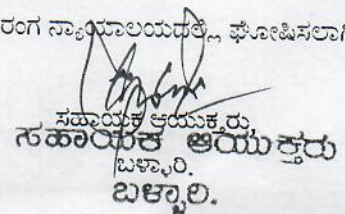 ರಂಗ ನ್ಯಾಯಾಲಯದಲ್ಲಿ ಘೋಷಿಸಲಾಗಿ
ಸಹಾಯಕ ಆಯುಕ್ತರು,
ಸಹಾಯಕ ಆಯುಕ್ತರು
ಬಳ್ಳಾರಿ.
ಬಳ್ಳಾರಿ.